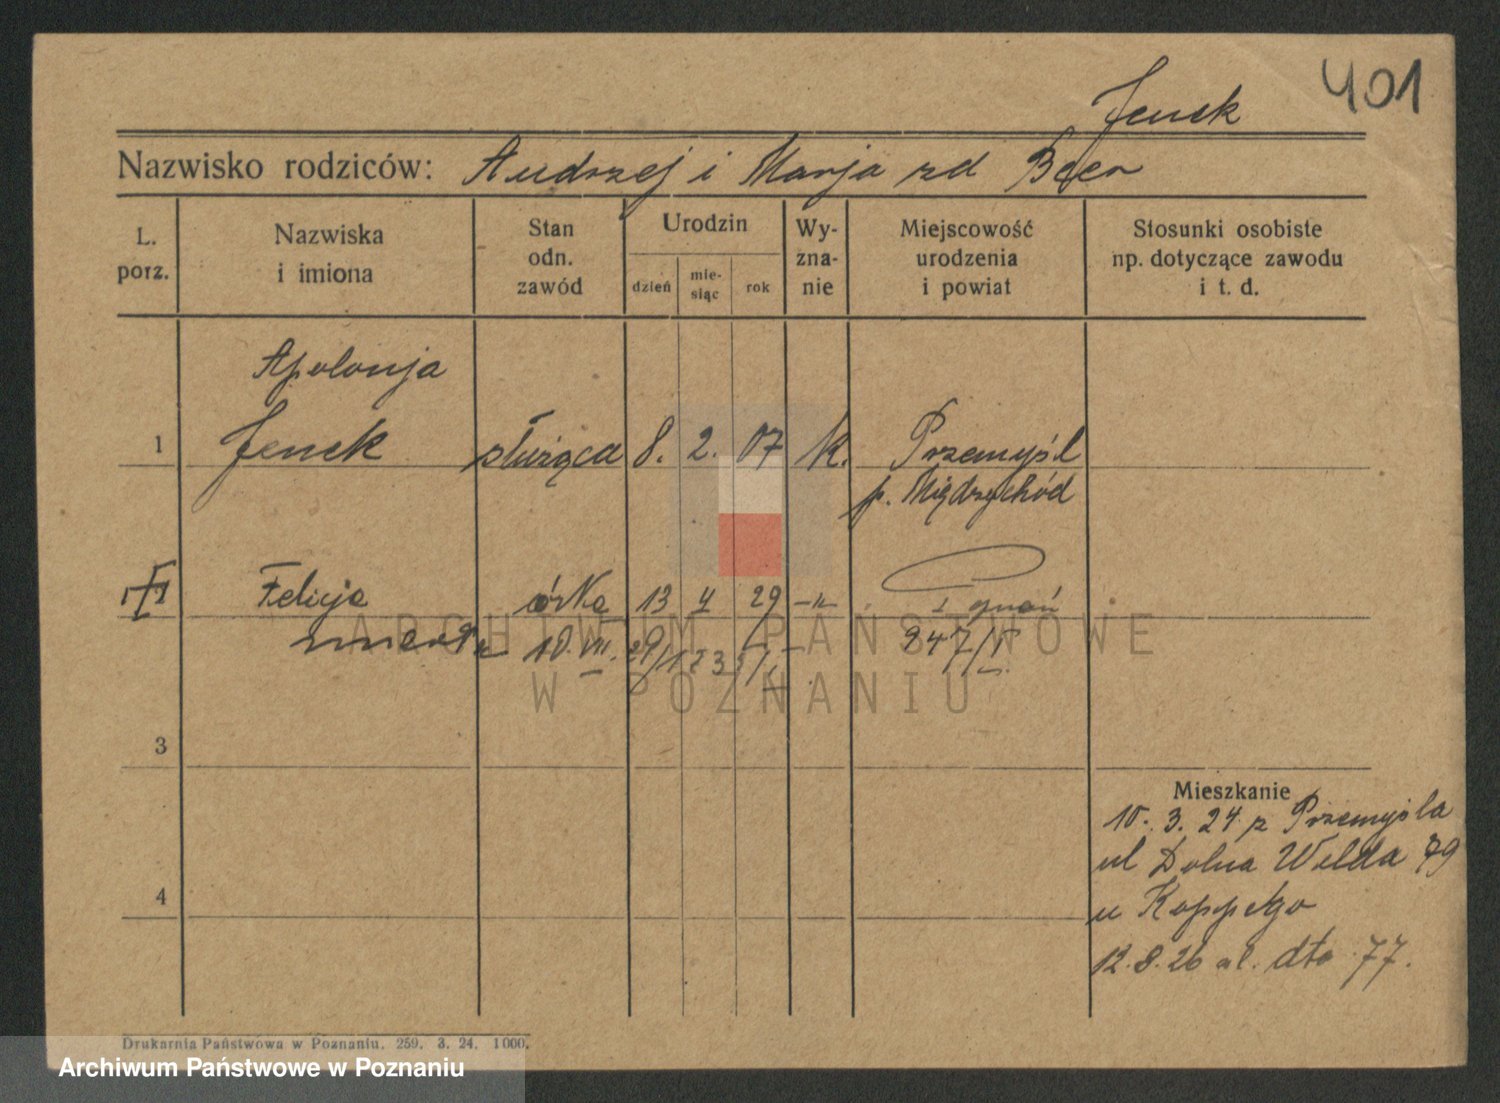 401
Jenek
Nazwisko rodziców: Andrzej i Marja zd Beer
L. porz.
Nazwiska i imiona
Stan odn. zawód
Urodzin
dzień
mie-siąc
rok
Wy-zna-nie
Miejscowość urodzenia i powiat
Stosunki osobiste np. dotyczące zawodu i t. d.
Apolonja
1 Jenek służąca 8. 2. 07 k. Przemyśl
p. Międzychód
Felicja córka 13 4 29 -"- Poznań
zmarła 10. VII. 29 947/V
3
4
Mieszkanie
10. 3. 24 z Przemyśla
ul Dolna Wilda 79
u Koppego
12. 8. 26 al. dto 77.
Drukarnia Państwowa w Poznaniu. 259. 3. 24. 1000.
ARCHIWUM PAŃSTWOWE
W POZNANIU
Archiwum Państwowe w Poznaniu